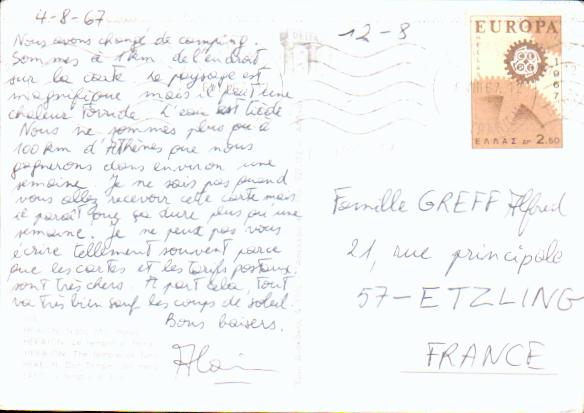 4-8-67
Nous avons changé de camping.
Sommes à 1 km de l'endroit
sur la carte le paysage est
magnifique mais il fait une
chaleur torride. L'eau est tiède
Nous ne sommes plus qu'à
100 km d'Athènes que nous
gagnerons dans environ une
semaine. Je ne sais pas quand
vous allez recevoir cette carte mais
il paraît que ça dure plus qu'une
semaine. Je ne peux pas vous
écrire tellement souvent parce
que les cartes et les tarifs postaux
sont très chers. A part cela, tout
va très bien sauf les coups de soleil.
Bons baisers.
Alain
12-8
EUROPA
1967
ΕΛΛΑΣ ΔΡ 2.50
Famille GREFF Alfred
21, rue principale
57-ETZLING
FRANCE